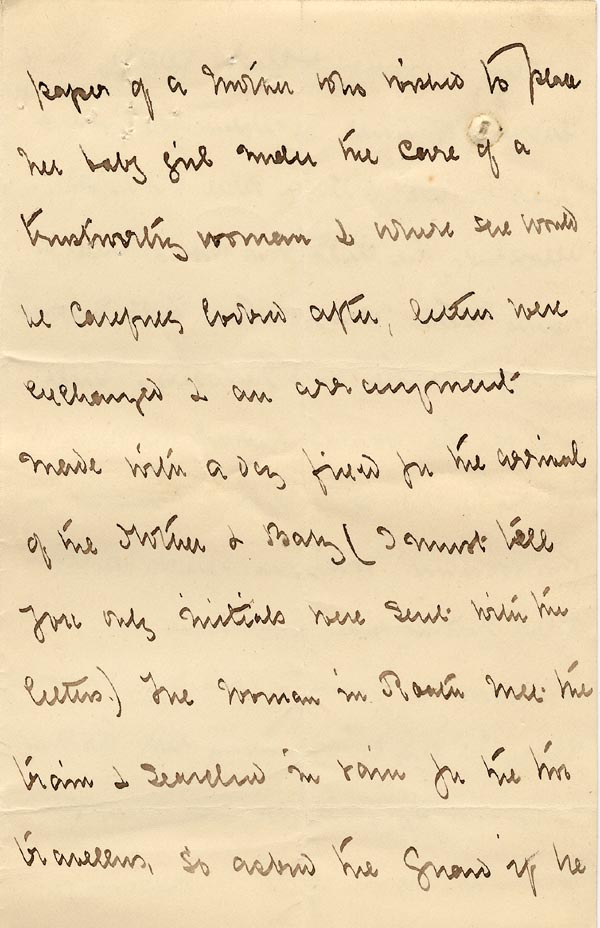 paper of a Mother who wished to place
her baby girl under the care of a
trustworthy woman & where she would
be carefully looked after, letters were
exchanged & an arrangement
made with a day fixed for the arrival
of the Mother & Baby ( I must tell
you only initials were sent with the
letters.) The woman in Roath met the
train & searched in vain for the two
travellers, so asked the Guard if he